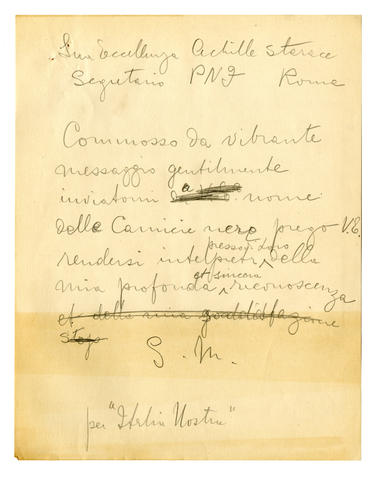 Sua Eccellenza Achille Starace
Segretario PNF Roma
Commosso da vibrante
messaggio gentilmente
inviatomi a nome
delle Camicie nere prego V.E.
rendersi interprete presso di loro della
mia profonda et sincera riconoscenza
et della mia soddisfazione
Stop
G. M.
per "Italia Nostra"